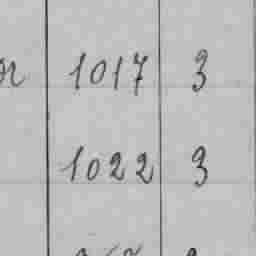 1017 3
1022 3